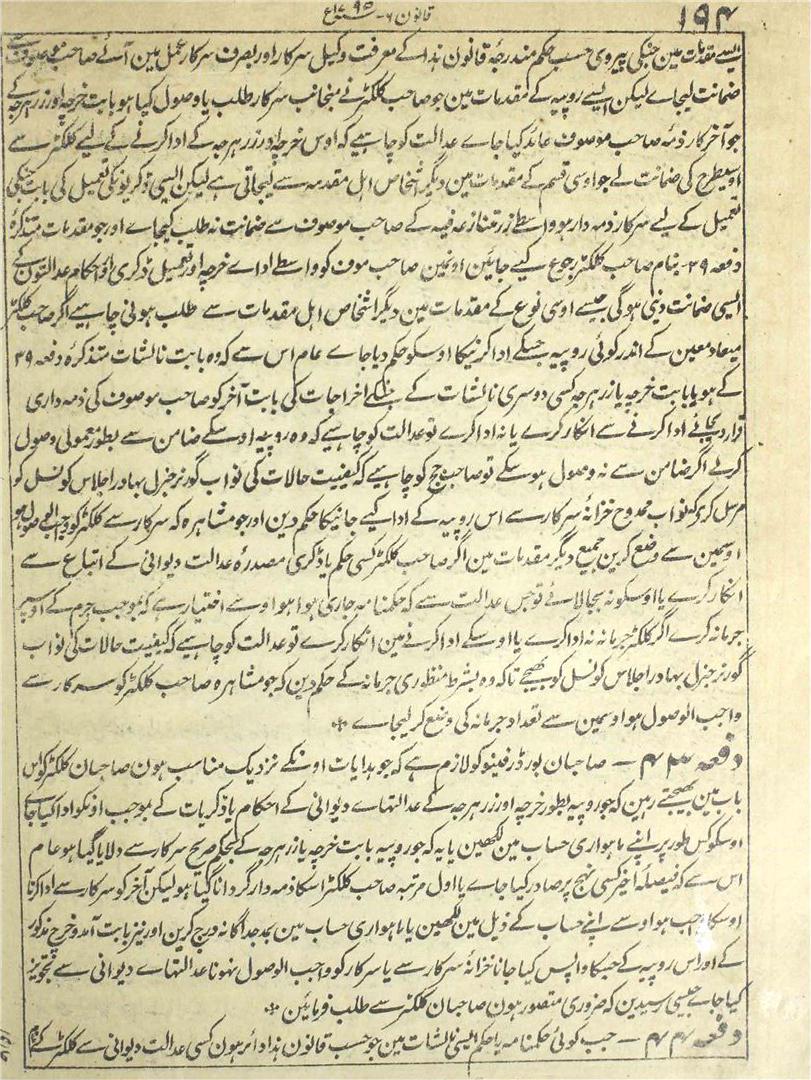 ۱۹۴
قانون ۶ - سنہ ۱۷۹۵ع
ایسے مقدمات مین جنکی پیروی حسب حکم مندرجۂ قانون ہذا کے معرفت وکیل سرکار اور بصرف سرکار عمل مین آئے صاحب موصوف سے
ضمانت لیجاے لیکن ایسے روپیہ کے مقدمات مین جو صاحب کلکٹر نے منجانب سرکار طلب یا وصول کیا ہو بابت خرچہ اور زر ہرجہ کے
جو آخر کار ذمہ صاحب موصوف عائد کیا جاے عدالت کو چاہیے کہ اوس خرچہ اور زر ہرجہ کے ادا کرنے کے لیے کلکٹر سے
اوسیطرح کی ضمانت لے جو اوسی قسم کے مقدمات مین دیگر اشخاص اہل مقدمہ سے لیجاتی ہے لیکن ایسی ڈگریونکی تعمیل کی بابت جنکی
تعمیل کے لیے سرکار ذمہ دار ہو واسطے زر متنازعہ فیہ کے صاحب موصوف سے ضمانت نہ طلب کیجاے اور جو مقدمات متذکرۂ
دفعہ ۳۹ - بنام صاحب کلکٹر رجوع کیے جائین اونمین صاحب موف کو واسطے اداے خرچہ اور تعمیل ڈگری اور احکام عدالتون کے
ایسی ضمانت دینی ہوگی جیسے اوسی نوع کے مقدمات مین دیگر اشخاص اہل مقدمات سے طلب ہونی چاہیے اگر صاحب کلکٹر
میعاد معین کے اندر کوئی روپیہ جسکے ادا کرنیکا اوسکو حکم دیا جاے عام اس سے کہ وہ بابت نالشات متذکرۂ دفعہ ۳۹
کے ہو یا بابت خرچہ یا زر ہرجہ کسی دوسری نالشات کے جنکے اخراجات کی بابت آخر کو صاحب موصوف کی ذمہ داری
قرار دیجاے ادا کرنے سے انکار کرے یا نہ ادا کرے تو عدالت کو چاہیے کہ وہ روپیہ اوسکے ضامن سے بطور معمولی وصول
کرلے اگر ضامن سے نہ وصول ہوسکے تو صاحب جج کو چاہیے کہ کیفیت حالات کی نواب گورنر جنرل بہادر اجلاس کونسل کو
مرسل کرے کہ نواب ممدوح خزانۂ سرکار سے اس روپیہ کے ادا کیے جانیکا حکم دین اور جو مشاہرہ کہ سرکار سے کلکٹر کو واجب الوصول ہو
اوسمین سے وضع کرین جمیع دیگر مقدمات مین اگر صاحب کلکٹر کسی حکم یا ڈگری مصدرۂ عدالت دیوانی کے اتباع سے
انکار کرے یا اوسکو نہ بجالائے تو جس عدالت سے کہ حکمنامہ جاری ہوا ہو اوسے اختیار ہے کہ بموجب جرم کے اوسپر
جرمانہ کرے اگر کلکٹر جرمانہ نہ ادا کرے یا اوسکے ادا کرنے مین انکار کرے تو عدالت کو چاہیے کہ کیفیت حالات کی نواب
گورنر جنرل بہادر اجلاس کونسل کو بھیجے تاکہ وہ بشرط منظوری جرمانہ کے حکم دین کہ جو مشاہرہ صاحب کلکٹر کو سرکار سے
واجب الوصول ہو اوسمین سے تعداد جرمانہ کی وضع کرلیجاے ❊
دفعہ ۴۳ — صاحبان بورڈ رفینیو کو لازم ہے کہ جو ہدایات اونکے نزدیک مناسب ہون صاحبان کلکٹر کو اس
باب مین بھیجتے رہین کہ جو روپیہ بطور خرچہ اور زر ہرجہ کے عدالتہاے دیوانی کے احکام یا ڈگریات کے بموجب اونکو ادا کیا جاے
اوسکو کس طور پر اپنے ماہواری حساب مین لکھین یا یہ کہ جو روپیہ بابت خرچہ یا زر ہرجہ کے بحکم صریح سرکار سے دلایا گیا ہو عام
اس سے کہ فیصلۂ اخیر کسی نہج پر صادر کیا جاے یا اول مرتبہ صاحب کلکٹر اسکا ذمہ دار گردانا گیا ہو لیکن آخر کو سرکار سے ادا کرنا
اوسکا واجب ہو اوسے اپنے حساب کے ذیل مین لکھین یا ماہواری حساب مین بمد جداگانہ درج کرین اور نیز بابت آمد و خرچ مذکور
کے اور اس روپیہ کے جسکا واپس کیا جانا خزانۂ سرکار سے یا سرکار کو واجب الوصول ہونا عدالتہاے دیوانی سے تجویز
کیا جاے جیسی رسیدین کہ ضروری متصور ہون صاحبان کلکٹر سے طلب فرمائین ❊
دفعہ ۴۴ — جب کوئی حکمنامہ یا حکم ایسی نالشات مین جو حسب قانون ہذا دائر ہون کسی عدالت دیوانی سے کلکٹر کے نام